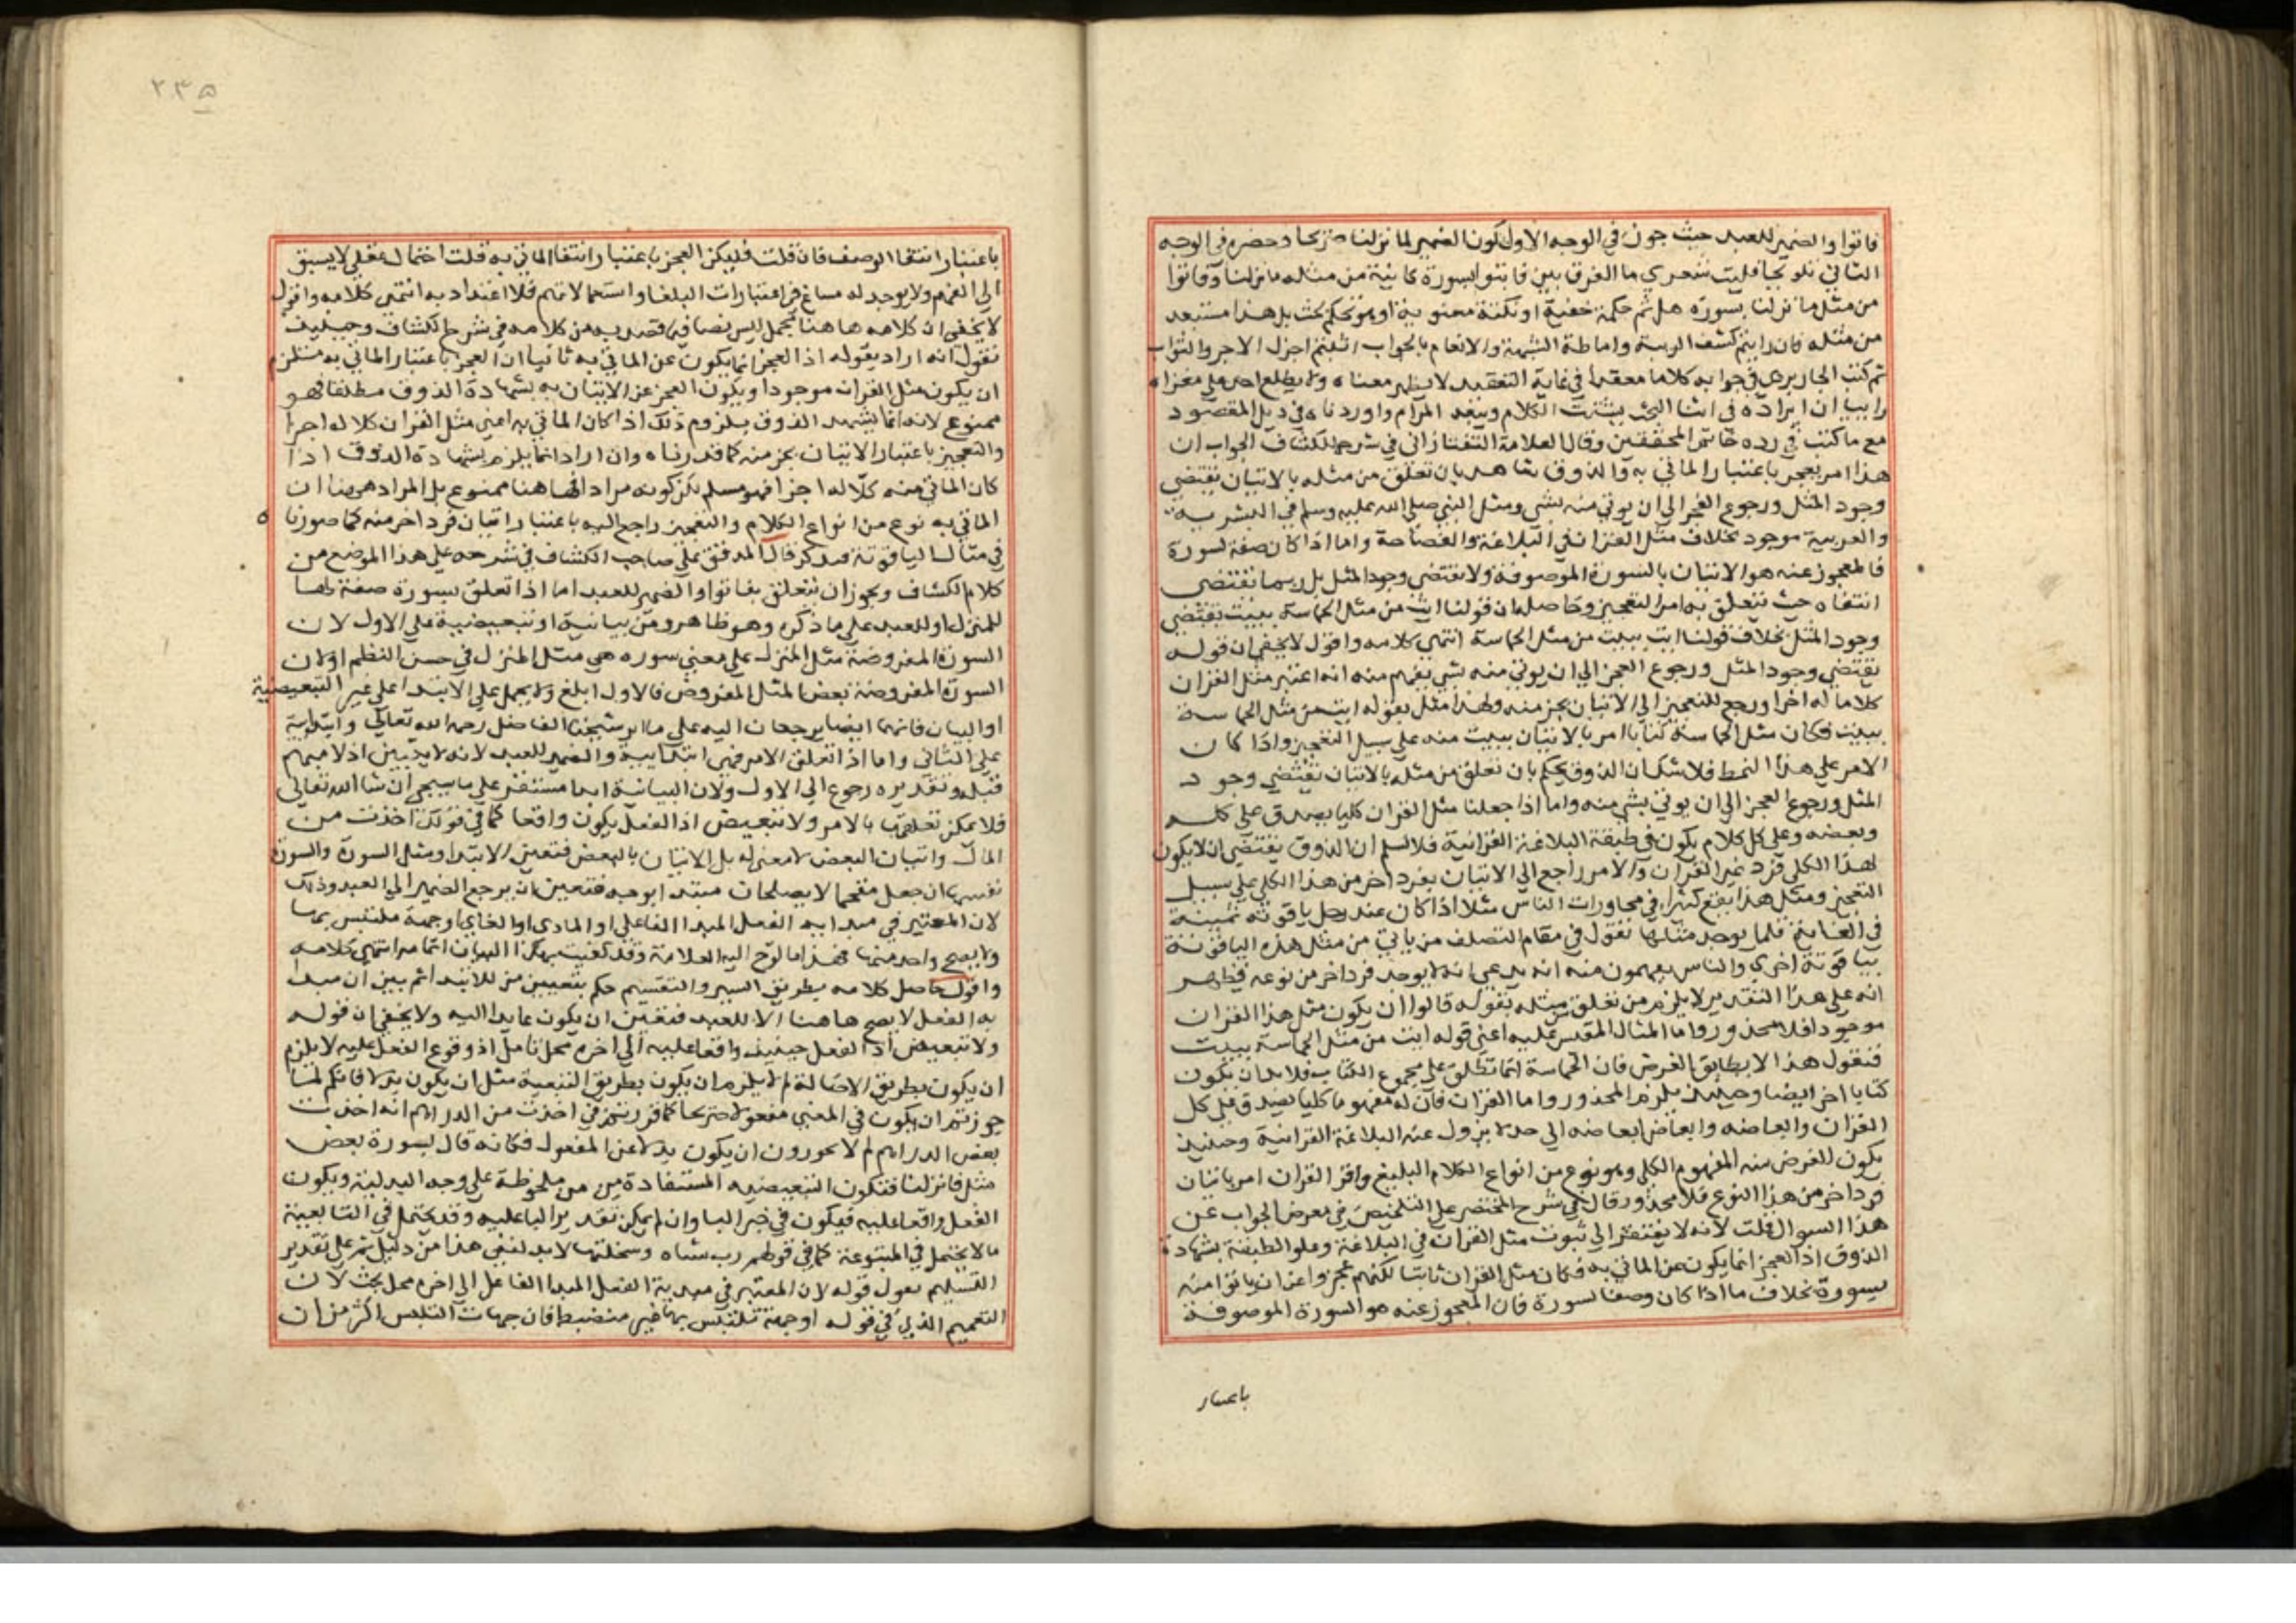 فاتوا والضمير للعبد حيث جوز في الوجه الاول كون الضمير لما نزلنا صريحا وحضره في الوجه
الثاني تلويحا فليت شعري ما الفرق بين فاتوا بسورة كاينة من مثله ما نزلنا وفاتوا
من مثل ما نزلنا بسورة هل ثم حكمة خفية او نكتة معنوية او هو تحكم بحت بل هذا مستبعد
من مثله فان رايتم كشف الريبة واماطة الشبهة والانعام بالجواب اثبتم اجزل الاجر والثواب
ثم كتب الجاربردي في جوابه كلاما معقدا في غاية التعقيد لا يظهر معناه ولا يطلع احد على مغزاه
راينا ان ايراده في اثنا البحث يشتت الكلام ويبعد المرام واوردناه في ذيل المقصود
مع ما كتب في رده خاتم المحققين وقال العلامة التفتازاني في شرحه للكشاف الجواب ان
هذا امر يعجز باعتبار الماتي به والذوق شاهد بان تعلق من مثله بالاتيان يقتضي
وجود المثل ورجوع العجز الى ان يوتى منه بشي ومثل النبي صلى الله عليه وسلم في البشرية
والعربية موجود بخلاف مثل القران في البلاغة والفصاحة واما اذا كان صفة لسورة
فالمعجوز عنه هو الاتيان بالسورة الموصوفة ولا يقتضي وجود المثل بل ربما تقتضي
انتفاه حيث تتعلق به امر التعجيز وحاصله ان قولنا ايت من مثل الحماسة ببيت يقتضي
وجود المثل بخلاف قولنا ايت ببيت من مثل الحماسة انتهى كلامه واقول لا يخفى ان قوله
يقتضي وجود المثل ورجوع العجز الى ان يوتى منه بشي يفهم منه انه اعتبر مثل القران
كلاما له اجزا ورجع التعجيز الى الاتيان بجز منه ولهذا مثل بقوله ايت من مثل الحماسة
ببيت فكان مثل الحماسة كتابا امر بالاتيان ببيت منه على سبيل التعجيز واذا كان
الامر على هذا النمط فلا شك ان الذوق يحكم بان تعلق من مثله بالاتيان يقتضي وجود
المثل ورجوع العجز الى ان يوتى بشي منه واما اذا جعلنا مثل القران كليا يصدق على كله
وبعضه وعلى كل كلام يكون في طبقة البلاغة القرانية فلا نسلم ان الذوق يقتضي ان لا يكون
لهذا الكلي فرد غير القران والامر راجع الى الاتيان بفرد اخر من هذا الكلي على سبيل
التعجيز ومثل هذا يقع كثيرا في محاورات الناس مثلا اذا كان عند رجل ياقوتة ثمينة
في الغاية قلما يوجد مثلها تقول في مقام التصلف من ياتي من مثل هذه الياقوتة
بياقوتة اخرى والناس يفهمون منه انه يدعي انه لا يوجد فرد اخر من نوعه فظهر
انه على هذا التقدير لا يلزم من تعلق مثله بقوله فاتوا ان يكون مثل هذا القران
موجودا فلا محذور واما المثال المقيس عليه اعني قوله ايت من مثل الحماسة ببيت
فنقول هذا لا يطابق الغرض فان الحماسة انما تطلق على مجموع الكتاب فلا بد ان يكون
كتابا اخر ايضا وحينئذ يلزم المحذور واما القران فان له مفهوما كليا يصدق على كل
القران وابعاضه وابعاض ابعاضه الى حد لا يزول عنه البلاغة القرانية وحينئذ
يكون الغرض منه المفهوم الكلي وهو نوع من انواع الكلام البليغ وافراد القران امر باتيان
فرد اخر من هذا النوع فلا محذور وقال في شرح المختصر على التلخيص في معرض الجواب عن
هذا السوال قلت لانه لا يقتضي الى ثبوت مثل القران في البلاغة وعلو الطبقة بشهادة
الذوق اذ العجز انما يكون عن الماتي به فكان مثل القران ثابتا لكنهم عجزوا عن ان ياتوا منه
بسورة بخلاف ما اذا كان وصفا لسورة فان المعجوز عنه هو السورة الموصوفة
باعتبار
٢٣٥
باعتبار انتفا الوصف فان قلت فليكن العجز باعتبار انتفا الماتي به قلت احتمال عقلي لا يسبق
الى الفهم ولا يوجد له مساغ في اعتبارات البلغا واستعمالاتهم فلا اعتداد به انتهى كلامه واقول
لا يخفى ان كلامه هاهنا مجمل ليس نصا فيما قصد به من كلامه في شرح الكشاف وحينئذ
نقول انه اراد بقوله اذ العجز انما يكون عن الماتي به ثانيا ان العجز باعتبار الماتي به مستلزم
ان يكون مثل القران موجودا ويكون العجز عن الاتيان به بشهادة الذوق مطلقا فهو
ممنوع لانه انما يشهد الذوق بلزوم ذلك اذا كان الماتي به اعني مثل القران كلا له اجزا
والتعجيز باعتبار الاتيان بجز منه كما قدرناه وان اراد انما يلزم بشهادة الذوق اذا
كان الماتي منه كلا له اجزا فهو مسلم لكن كونه مرادا هاهنا ممنوع بل المراد هاهنا ان
الماتي به نوع من انواع الكلام والتعجيز راجع اليه باعتبار اتيان فرد اخر منه كما صورنا ه
في مثال الياقوتة فتذكر قال المدقق على صاحب الكشاف في شرحه على هذا الموضع من
كلام الكشاف ويجوز ان يتعلق بفاتوا والضمير للعبد اما اذا تعلق بسورة صفة لها
للمنزل او للعبد على ما ذكره وهو ظاهر ومن بيانية او تبعيضية على الاول لان
السورة المفروضة مثل المنزل على معنى سورة هي مثل المنزل في حسن النظم او لان
السورة المفروضة بعض المثل المفروض فالاول ابلغ ولا يحمل على الابتدا على غير التبعيضية
او البيان فانهما ايضا يرجعان اليه على ما اثر شيخنا الفاضل رحمه الله تعالى وابتدائية
على الثاني واما اذا تعلق بالامر فهي ابتدائية والضمير للعبد لانه لا يتبين اذ لا مبهم
قبله وتقديره رجوع الى الاول ولان البيانية ابدا مستقر على ما سيجي ان شا الله تعالى
فلا يمكن تعلقها بالامر ولا تبعيض اذ الفعل يكون واقعا كما في قولك اخذت من
المال واتيان البعض لا معنى له بل الاتيان بالبعض فتعين الابتدا ومثل السورة والسورة
نفسها ان جعل مقحما لا يصلحان مبتدا بوجه فتعين ان يرجع الضمير الى العبد وذلك
لان المعتبر في مبدايه الفعل المبدا الفاعلي او المادي او الغائي او جهة ملتبس بها
ولا يصح واحد منها فهذا ما لوح اليه العلامة وقد كفيت بهذا البيان اتمامه انتهى كلامه
واقول حاصل كلامه بطريق السبر والتقسيم حكم بتعيين من للابتدا ثم بين ان مبدا
يه الفعل لا يصح هاهنا الا للعبد فتعين ان يكون عايدا اليه ولا يخفى ان قوله
ولا تبعيض اذ الفعل حينئذ واقعا عليه الى اخره محل تامل اذ وقوع الفعل عليه لا يلزم
ان يكون بطريق الاصالة لم لا يلزم ان يكون بطريق التبعية مثل ان يكون بدلا فانكم لما
جوزتم ان يكون في المعنى مفعولا صريحا كما قررتم في اخذت من الدراهم انه اخذت
بعض الدراهم لم لا تجوزون ان يكون بدلا عن المفعول فكانه قال بسورة بعض
مثل ما نزلنا فتكون التبعيضية المستفادة من من ملحوظة على وجه البدلية ويكون
الفعل واقعا عليه فيكون في خبر الباوان لم يكن تقدير الباء عليه وقد يحتمل في التابعية
ما لا يحتمل في المتبوعية كما في قولهم رب شاة وسخلتها لا بد لنفي هذا من دليل ثم على تقدير
التسليم نقول قوله لان المعتبر في مبدية الفعل المبدا الفاعل الى اخره محل بحث لان
التعميم الذي في قوله او جهة تلتبس بها غير منضبط فان جهات التلبس اكثر من ان